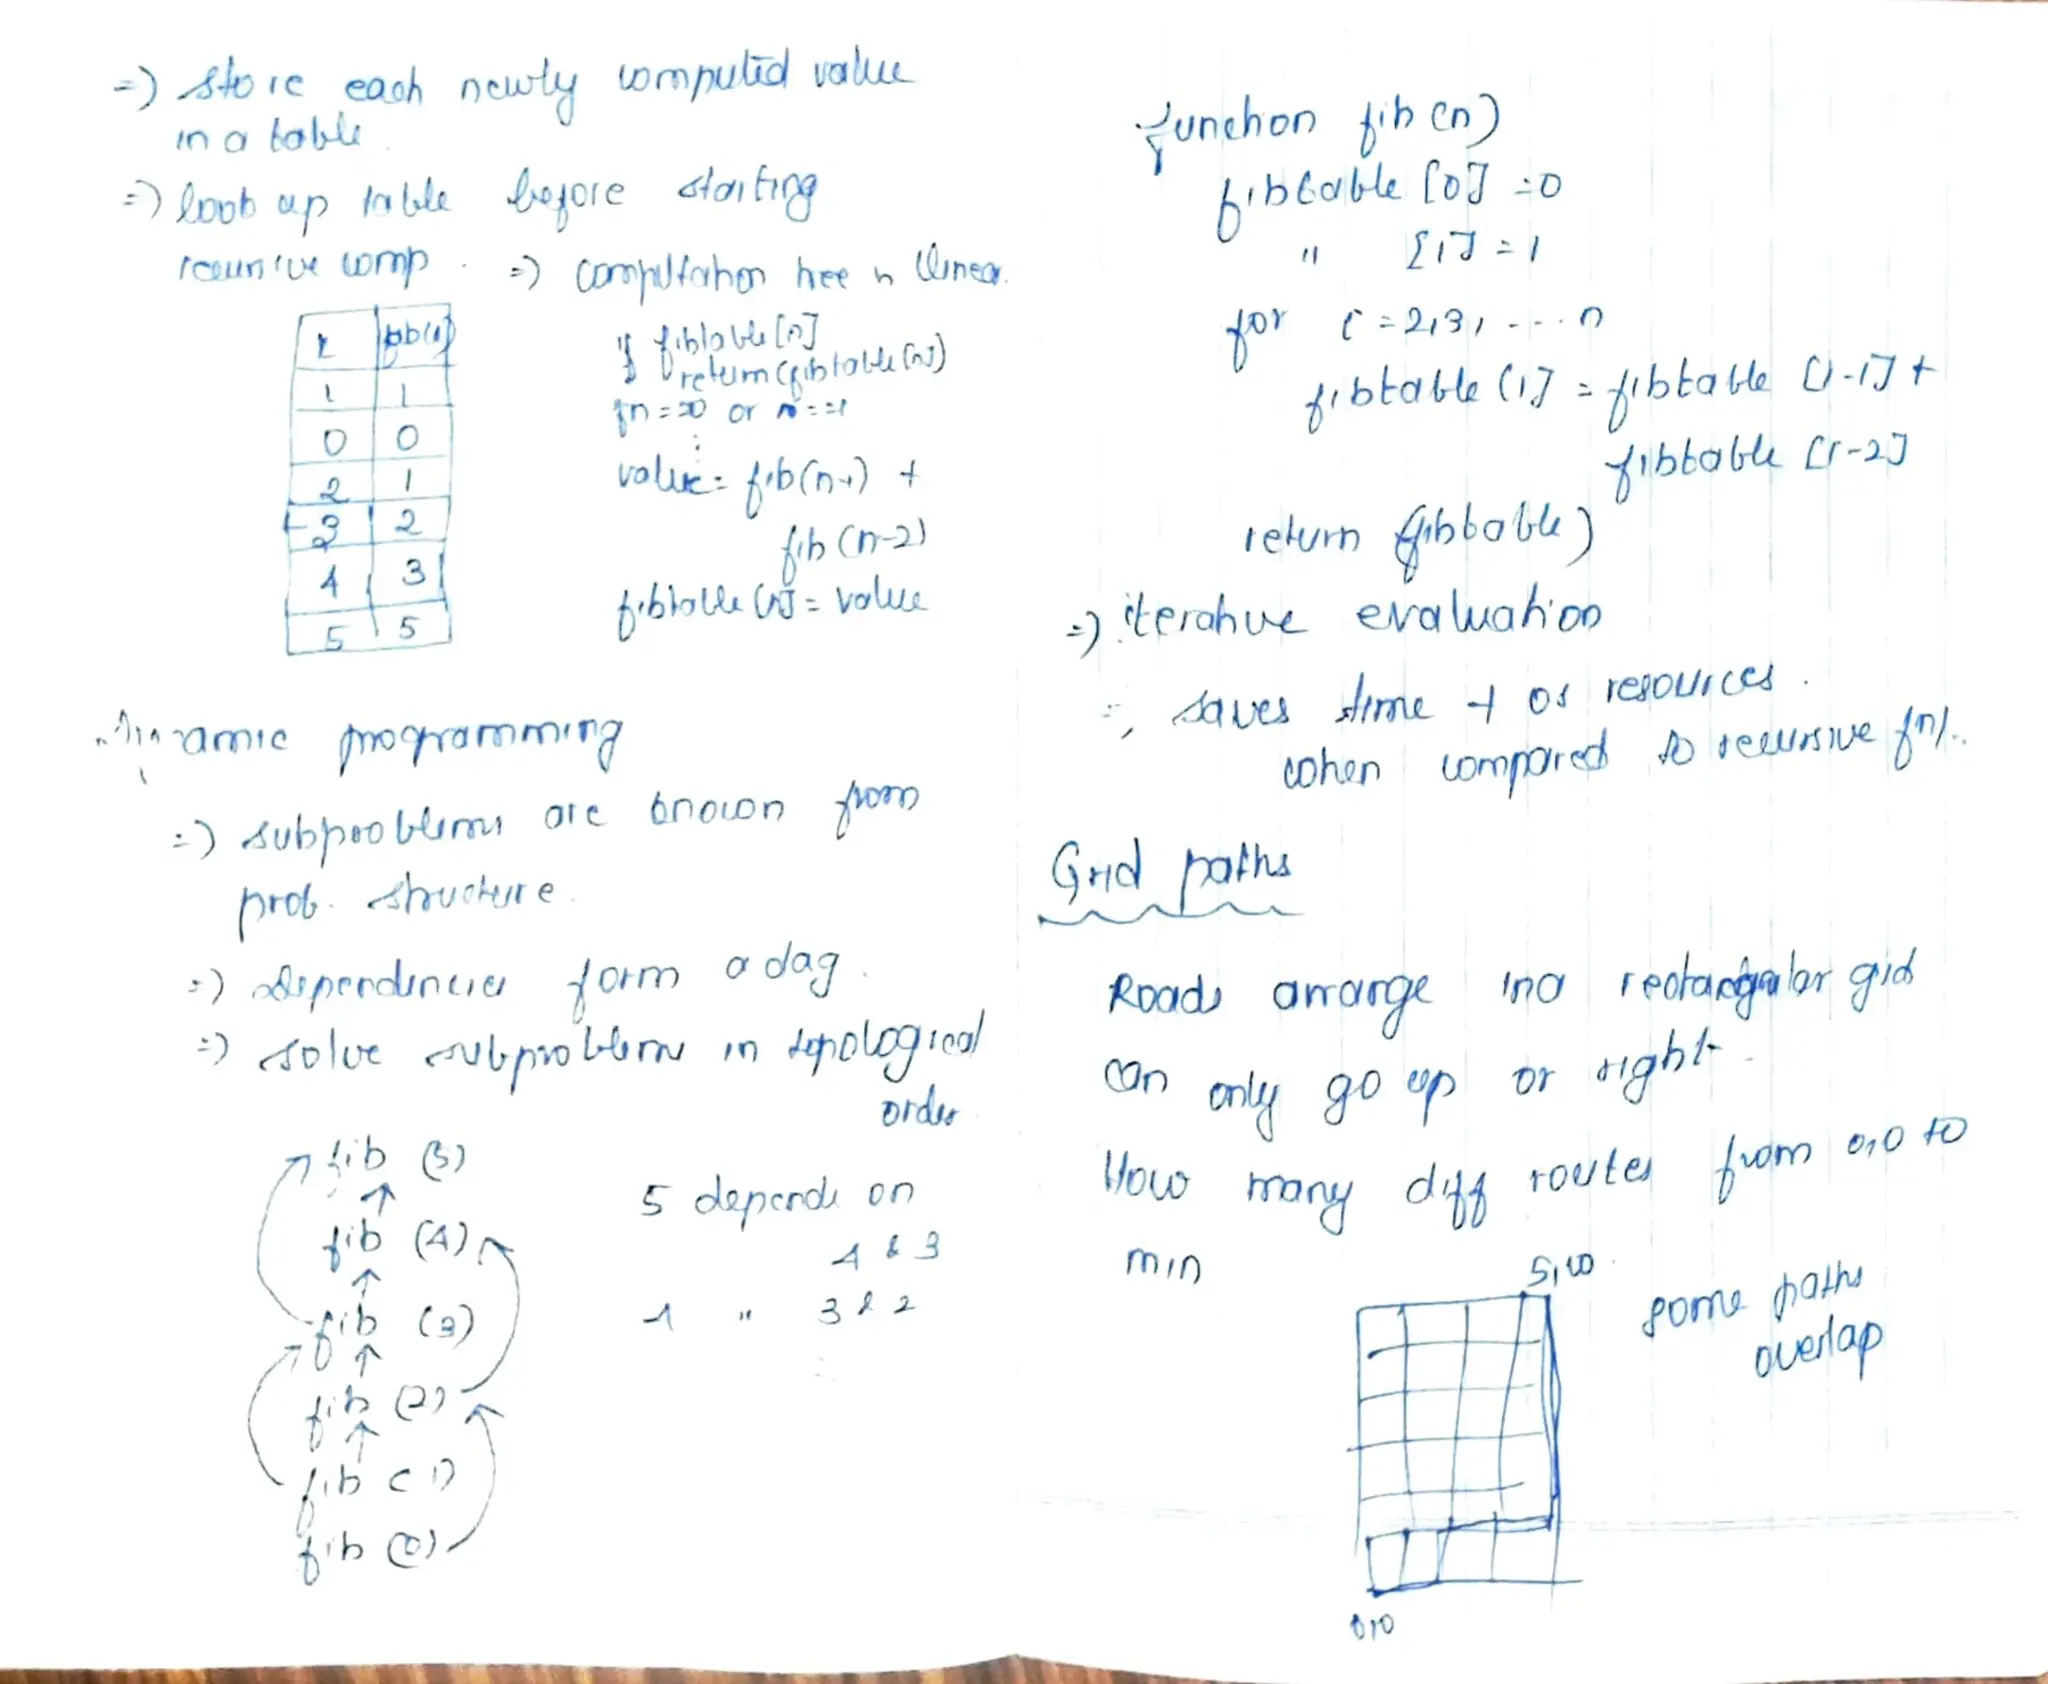 =) store each newly computed value
in a table.
=) look up table before starting
recursive comp.
=) computation tree is linear.
k fib(k)
1 1
0 0
2 1
3 2
4 3
5 5
if fibtable[n]
return(fibtable[n])
if n==0 or n==1
:
value = fib(n-1) +
fib(n-2)
fibtable[n] = value
Dynamic programming
=) subproblems are known from
prob. structure.
=) dependencies form a dag.
=) solve subproblems in topological
order.
fib (5)
fib (4)
fib (3)
fib (2)
fib (1)
fib (0)
5 depends on
4 & 3
4 " 3 & 2
function fib(n)
fibtable [0] = 0
" [1] = 1
for i = 2,3, ---. n
fibtable [i] = fibtable [i-1] +
fibtable [i-2]
return (fibtable)
=) iterative evaluation
saves time + os resources.
when compared to recursive fn).
Grid paths
Roads arrange in a rectangular grid
can only go up or right.
How many diff routes from 0,0 to
m,n
5,10
some paths
overlap
0,0